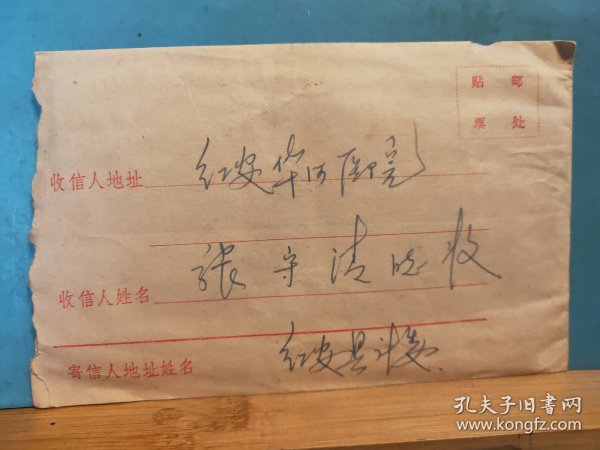 贴 邮
票 处
收信人地址 红安华河医院
收信人姓名 张守清 收
寄信人地址姓名 红安县
孔夫子旧书网
www.kongfz.com